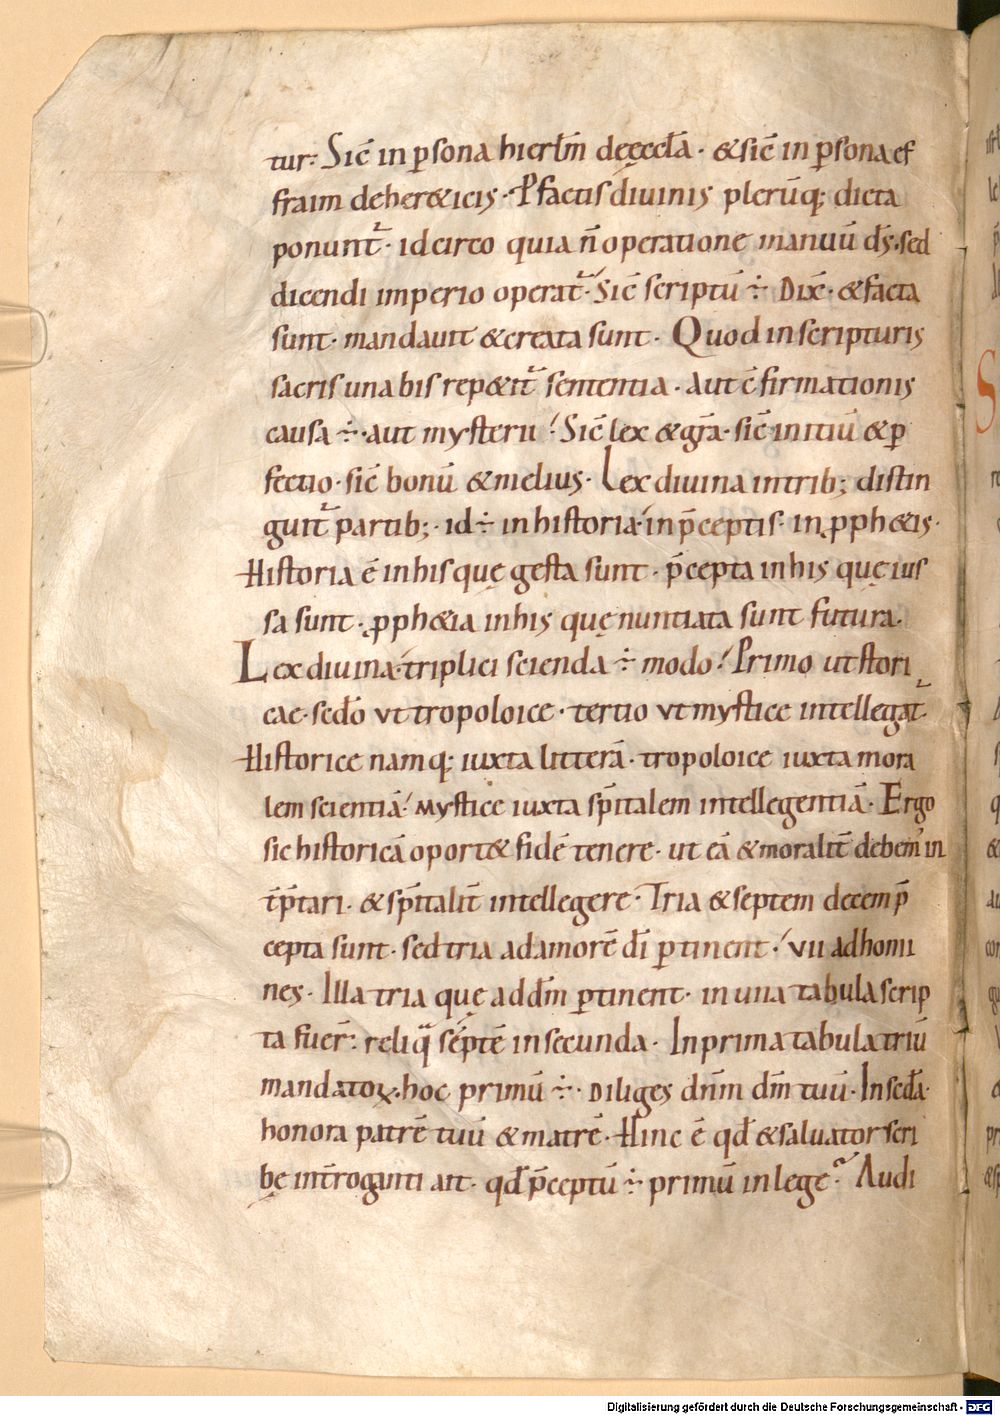 tur: Sic̄ in ꝑsona hierl̄m de ęccl̄a · & sic̄ in ꝑsona ef
fraim de her&icis · P̄ factis diuinis plerūq; dicta
ponunt᷑ · idcirco quia n̄ operatione manuū d̄s · sed
dicendi imperio operat᷑ · Sic̄ scriptū ÷ Dix̄ · & facta
sunt · mandauit & creata sunt · Quod in scripturis
sacris una bis rep&it᷑ sententia · aut c̄firmationis
causa ÷ · aut mysterii · Sic̄ lex & gr̄a · sic̄ initiū & ꝑ
fectio · sic̄ bonū & melius · Lex diuina in trib; distin
guit᷑ partib; · id ÷ in historia · in p̄ceptis · in ꝓph&is ·
Historia ē in his quę gesta sunt · p̄cepta in his quę ius
sa sunt · ꝓph&ia in his quę nuntiata sunt futura ·
Lex diuina · triplici scienda ÷ modo · Primo ut stori
cae · sed̄o ut tropoloice · tertio ut mystice intellegat᷑ ·
Historice namq; iuxta litterā · tropoloice iuxta mora
lem scientiā · mystice iuxta sp̄italem intellegentiā · Ergo
sic historicā oport& fidē tenere · ut eā & moralit̄ debem' in
t̄p̄tari · & sp̄italit̄ intellegere · Tria & septem decem p̄
cepta sunt · sed tria ad amorē dī ꝑtinent · VII ad homi
nes · Illa tria quę ad dm̄ ꝑtinent · in una tabula scrip
ta fuer̄ : reliq̄ septē in secunda · In prima tabula triū
mandatoꝝ · hoc primū ÷ · Diliges dn̄m dm̄ tuū · In sed̄a ·
honora patrē tuū & matrē · Hinc ē qd̄ & saluator scri
bę int̄roganti ait · qd̄ p̄ceptū ÷ primū in lege · Audi
Digitalisierung gefördert durch die Deutsche Forschungsgemeinschaft - DFG